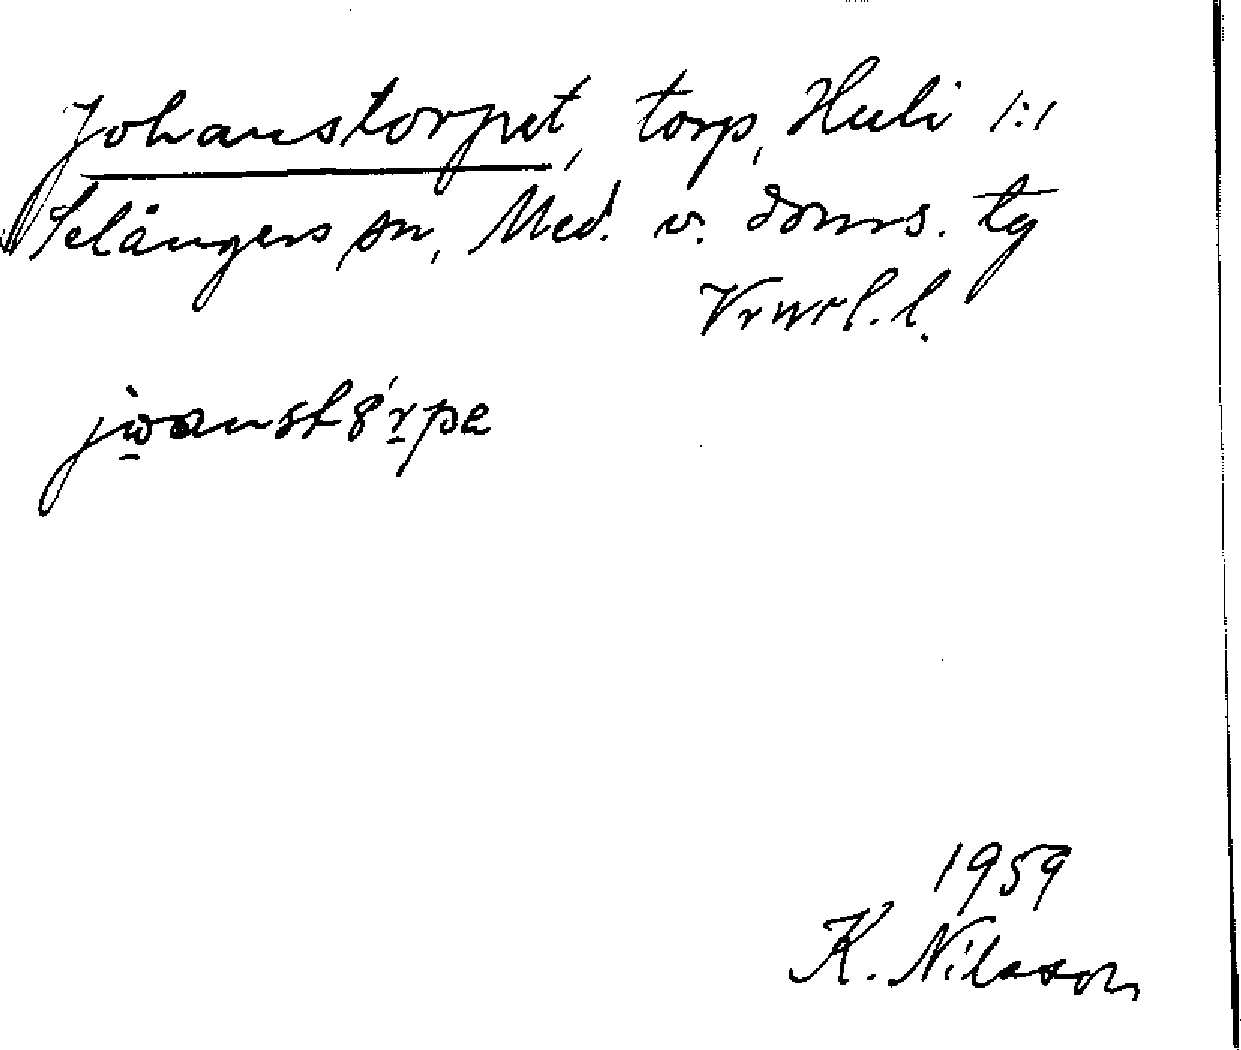 Johanstorpet, torp, Huli 1:1
Selångers sn, Med. v. doms. tg
Vrnrl. l.
1959
K. Nilsson